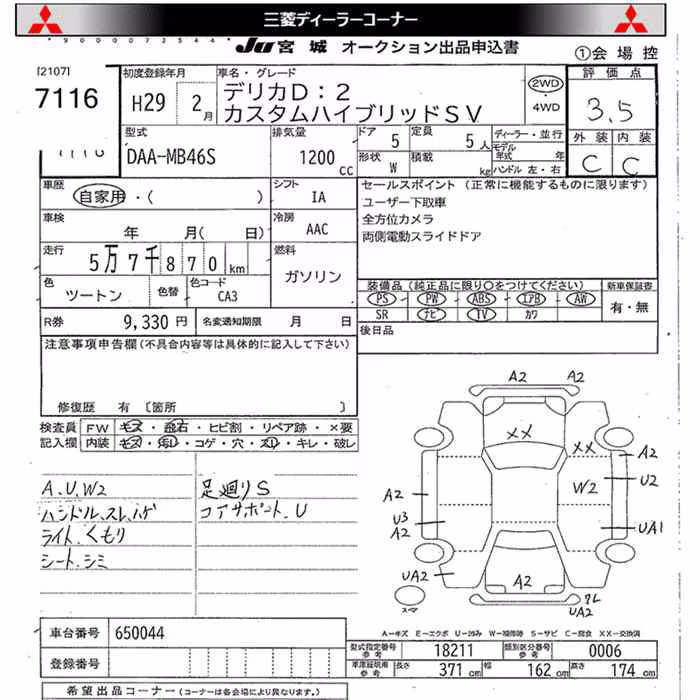 三菱ディーラーコーナー
Ju 宮城 オークション出品申込書
①会場控
[2107]
7116
初度登録年月
H29 2月
車名・グレード
デリカD:2
カスタムハイブリッドSV
2WD
4WD
評価点
3.5
外装 内装
C C
型式
DAA-MB46S
排気量
1200 cc
ドア 5
定員 5人
形状 W
積載 kg
ディーラー・並行
モデル年式 年
ハンドル 左・右
車歴
自家用・( )
シフト
IA
車検
年 月( 日)
冷房
AAC
走行
5万7千870km
燃料
ガソリン
色
ツートン
色替
色コード
CA3
R券 9,330円
名変通知期限 月 日
セールスポイント (正常に機能するものに限ります)
ユーザー下取車
全方位カメラ
両側電動スライドドア
装備品(純正品に限り○をつけてください)
PS PW ABS エアB AW
SR ナビ TV カワ
新車保証書
有・無
後日品
注意事項申告欄(不具合内容等は具体的に記入して下さい)
修復歴 有 〔箇所 〕
検査員 FW キズ・飛石・ヒビ割・リペア跡・×要
記入欄 内装 キズ・汚レ・コゲ・穴・スレ・キレ・破レ
A、U、W2
ハンドル、スレ、ハゲ
ライト、くもり
シート、シミ
足廻りS
コアサポート、U
A2 A2
XX XX
A2
U2
A2
W2
U3
A2
UA1
UA2
A2
スマ
UA2
A-キズ E-エクボ U-凹み W-補修跡 S-サビ C-腐食 XX-交換済
車台番号 650044
登録番号
型式指定番号 参考 18211
類別区分番号 参考 0006
車庫証明用 参考 長さ 371cm 幅 162cm 高さ 174cm
希望出品コーナー(コーナーは各会場により異なります。)